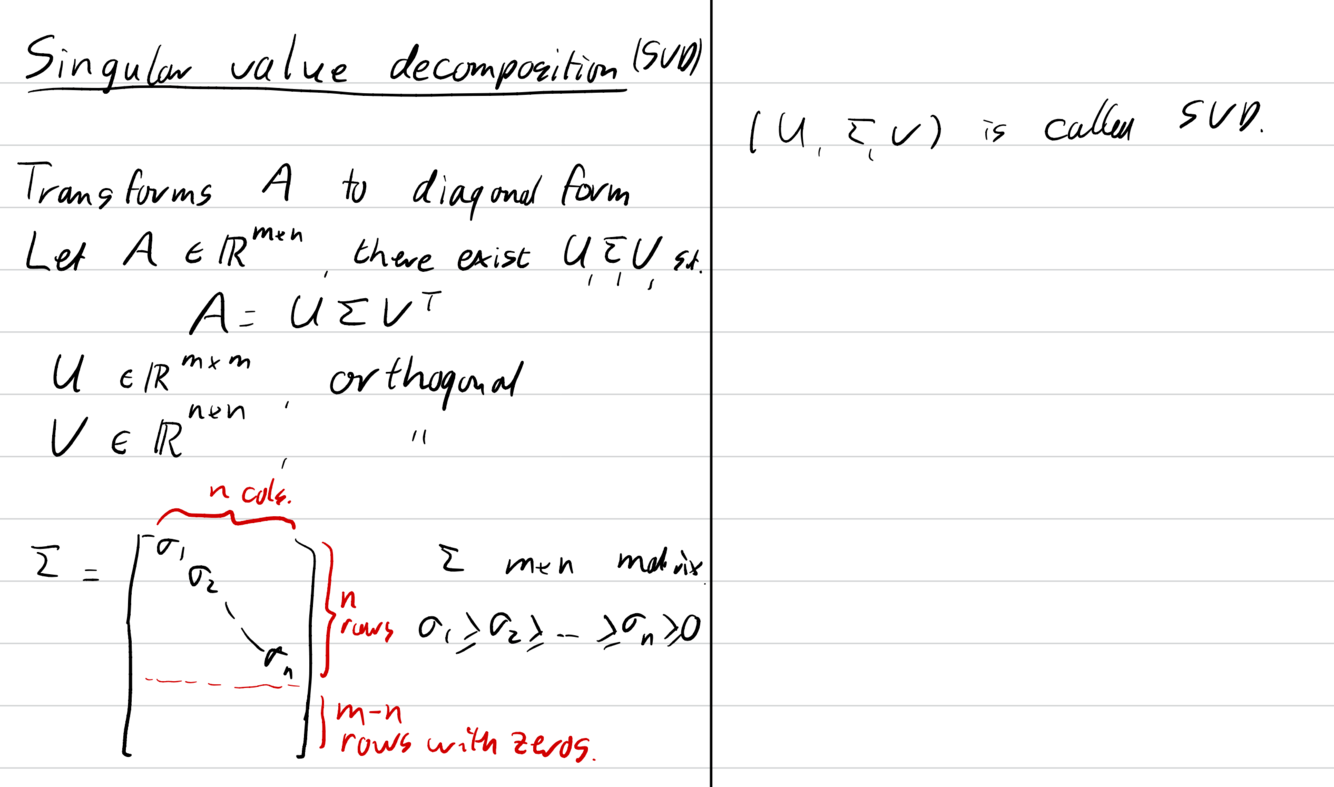 Singular value decomposition (SVD)
Transforms A to diagonal form
Let A ∈ ℝ^{m×n}, there exist U, Σ, V, st.
A = U Σ V^T
U ∈ ℝ^{m×m}, orthogonal
V ∈ ℝ^{n×n}, "
n cols.
Σ = [ σ₁ σ₂ σₙ ]
n rows
m-n rows with zeros.
Σ m×n matrix.
σ₁ ≥ σ₂ ≥ -- ≥ σₙ ≥ 0
(U, Σ, V) is called SVD.